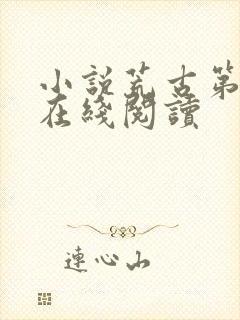 小說荒古第
在綫閱讀
連心山